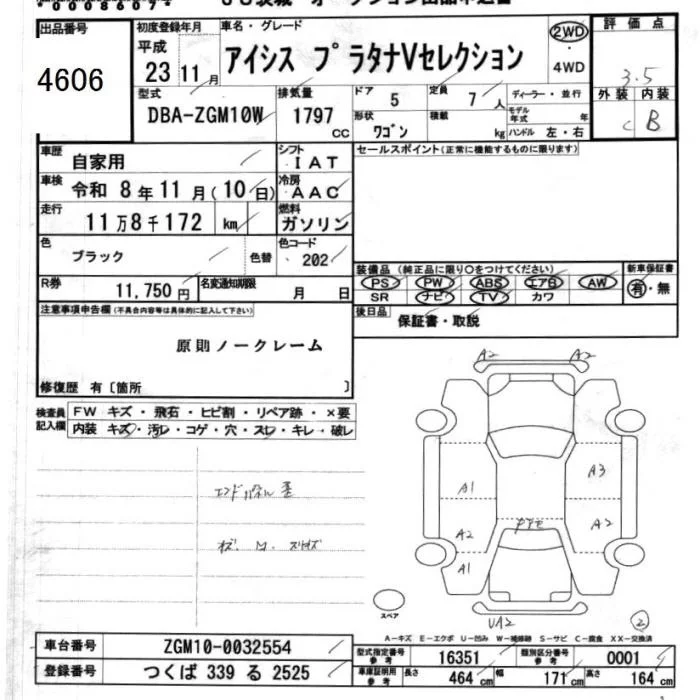 出品番号
4606
初度登録年月
平成
23 11月
車名・グレード
アイシス プラタナVセレクション
2WD
・
4WD
評価点
3.5
外装 内装
C B
型式
DBA-ZGM10W
排気量
1797
CC
ドア
5
定員
7人
形状
ワゴン
積載
kg
ディーラー・並行
モデル年式 年
ハンドル 左・右
車歴
自家用
シフト
IAT
セールスポイント(正常に機能するものに限ります)
車検
令和 8年11月(10日)
冷房
AAC
走行
11万8千172 km
燃料
ガソリン
色
ブラック
色替
色コード
202
R券
11,750円
名変通知期限
月 日
装備品(純正品に限り○をつけてください)
PS PW ABS エアB AW
SR ナビ TV カワ
新車保証書
有・無
後日品
保証書・取説
注意事項申告欄(不具合内容等は具体的に記入して下さい)
原則ノークレーム
修復歴 有〔箇所 〕
検査員記入欄
FW キズ・飛石・ヒビ割・リペア跡・×要
内装 キズ・汚レ・コゲ・穴・スレ・キレ・破レ
A2 A2
A1 A3
A2 A2
A1
スペア
UA2
2
A-キズ E-エクボ U-凹み W-補修跡 S-サビ C-腐食 XX-交換済
車台番号
ZGM10-0032554
型式指定番号
参考
16351
類別区分番号
参考
0001
登録番号
つくば 339 る 2525
車庫証明用
参考
長さ
464cm
幅
171cm
高さ
164cm